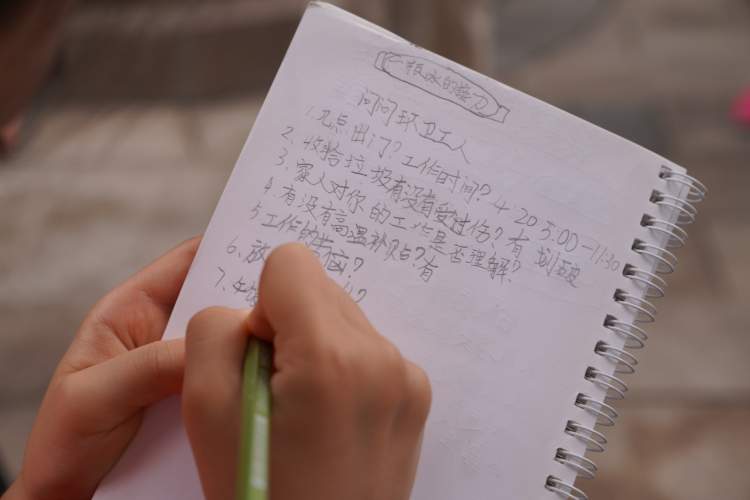 一瓶水的接力
问问环卫工人
1.几点出门?工作时间? 4:20 5:00-11:30
2.收拾垃圾有没有受过伤?有 划破
3.家人对你的工作是否理解?
4.有没有高温补贴?有
5.工作的
6.放
7.